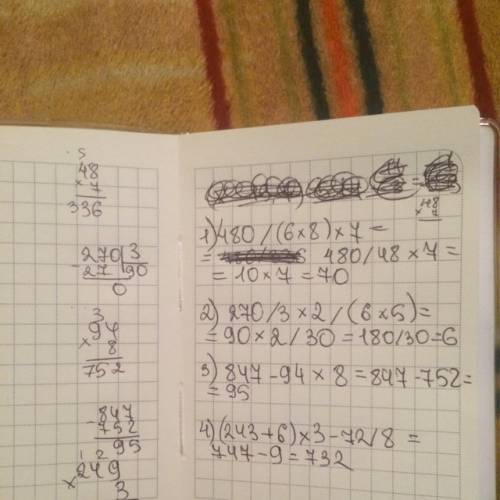 5
48
× 7
336
- 270 3
27 90
0
3
94
× 8
752
- 847
752
95
1 2
249
× 3
48
× 7
1) 480 / (6 × 8) × 7 =
= 480 / 48 × 7 =
= 10 × 7 = 70
2) 270 / 3 × 2 / (6 × 5) =
= 90 × 2 / 30 = 180 / 30 = 6
3) 847 - 94 × 8 = 847 - 752 =
= 95
4) (243 + 6) × 3 - 72 / 8 =
747 - 9 = 732